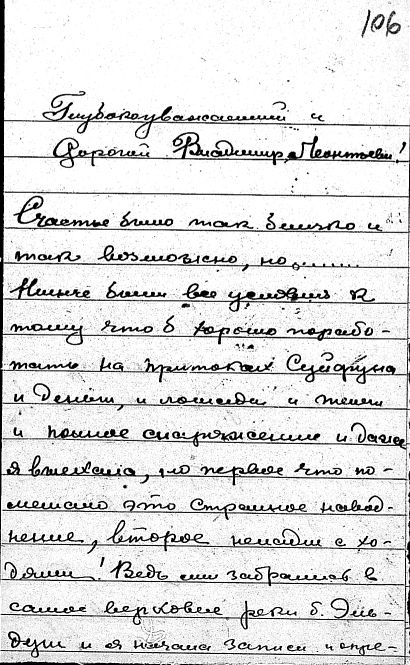 106
Глубокоуважаемый и
Дорогой Владимир Леонтьевич!
Счастье было так близко и
так возможно, но........
Нынче были все условия к
тому что б хорошо порабо-
тать на притоках Суйфуна
и деньги, и лошади и
и полное снаряжение и даже
я выехала, но первое что по-
мешало это страшное навод-
нение, второе нелады с хо-
дями! Ведь мы забрались в
самое верховье реки б. Эль-
дуги и я начала записи и опре-